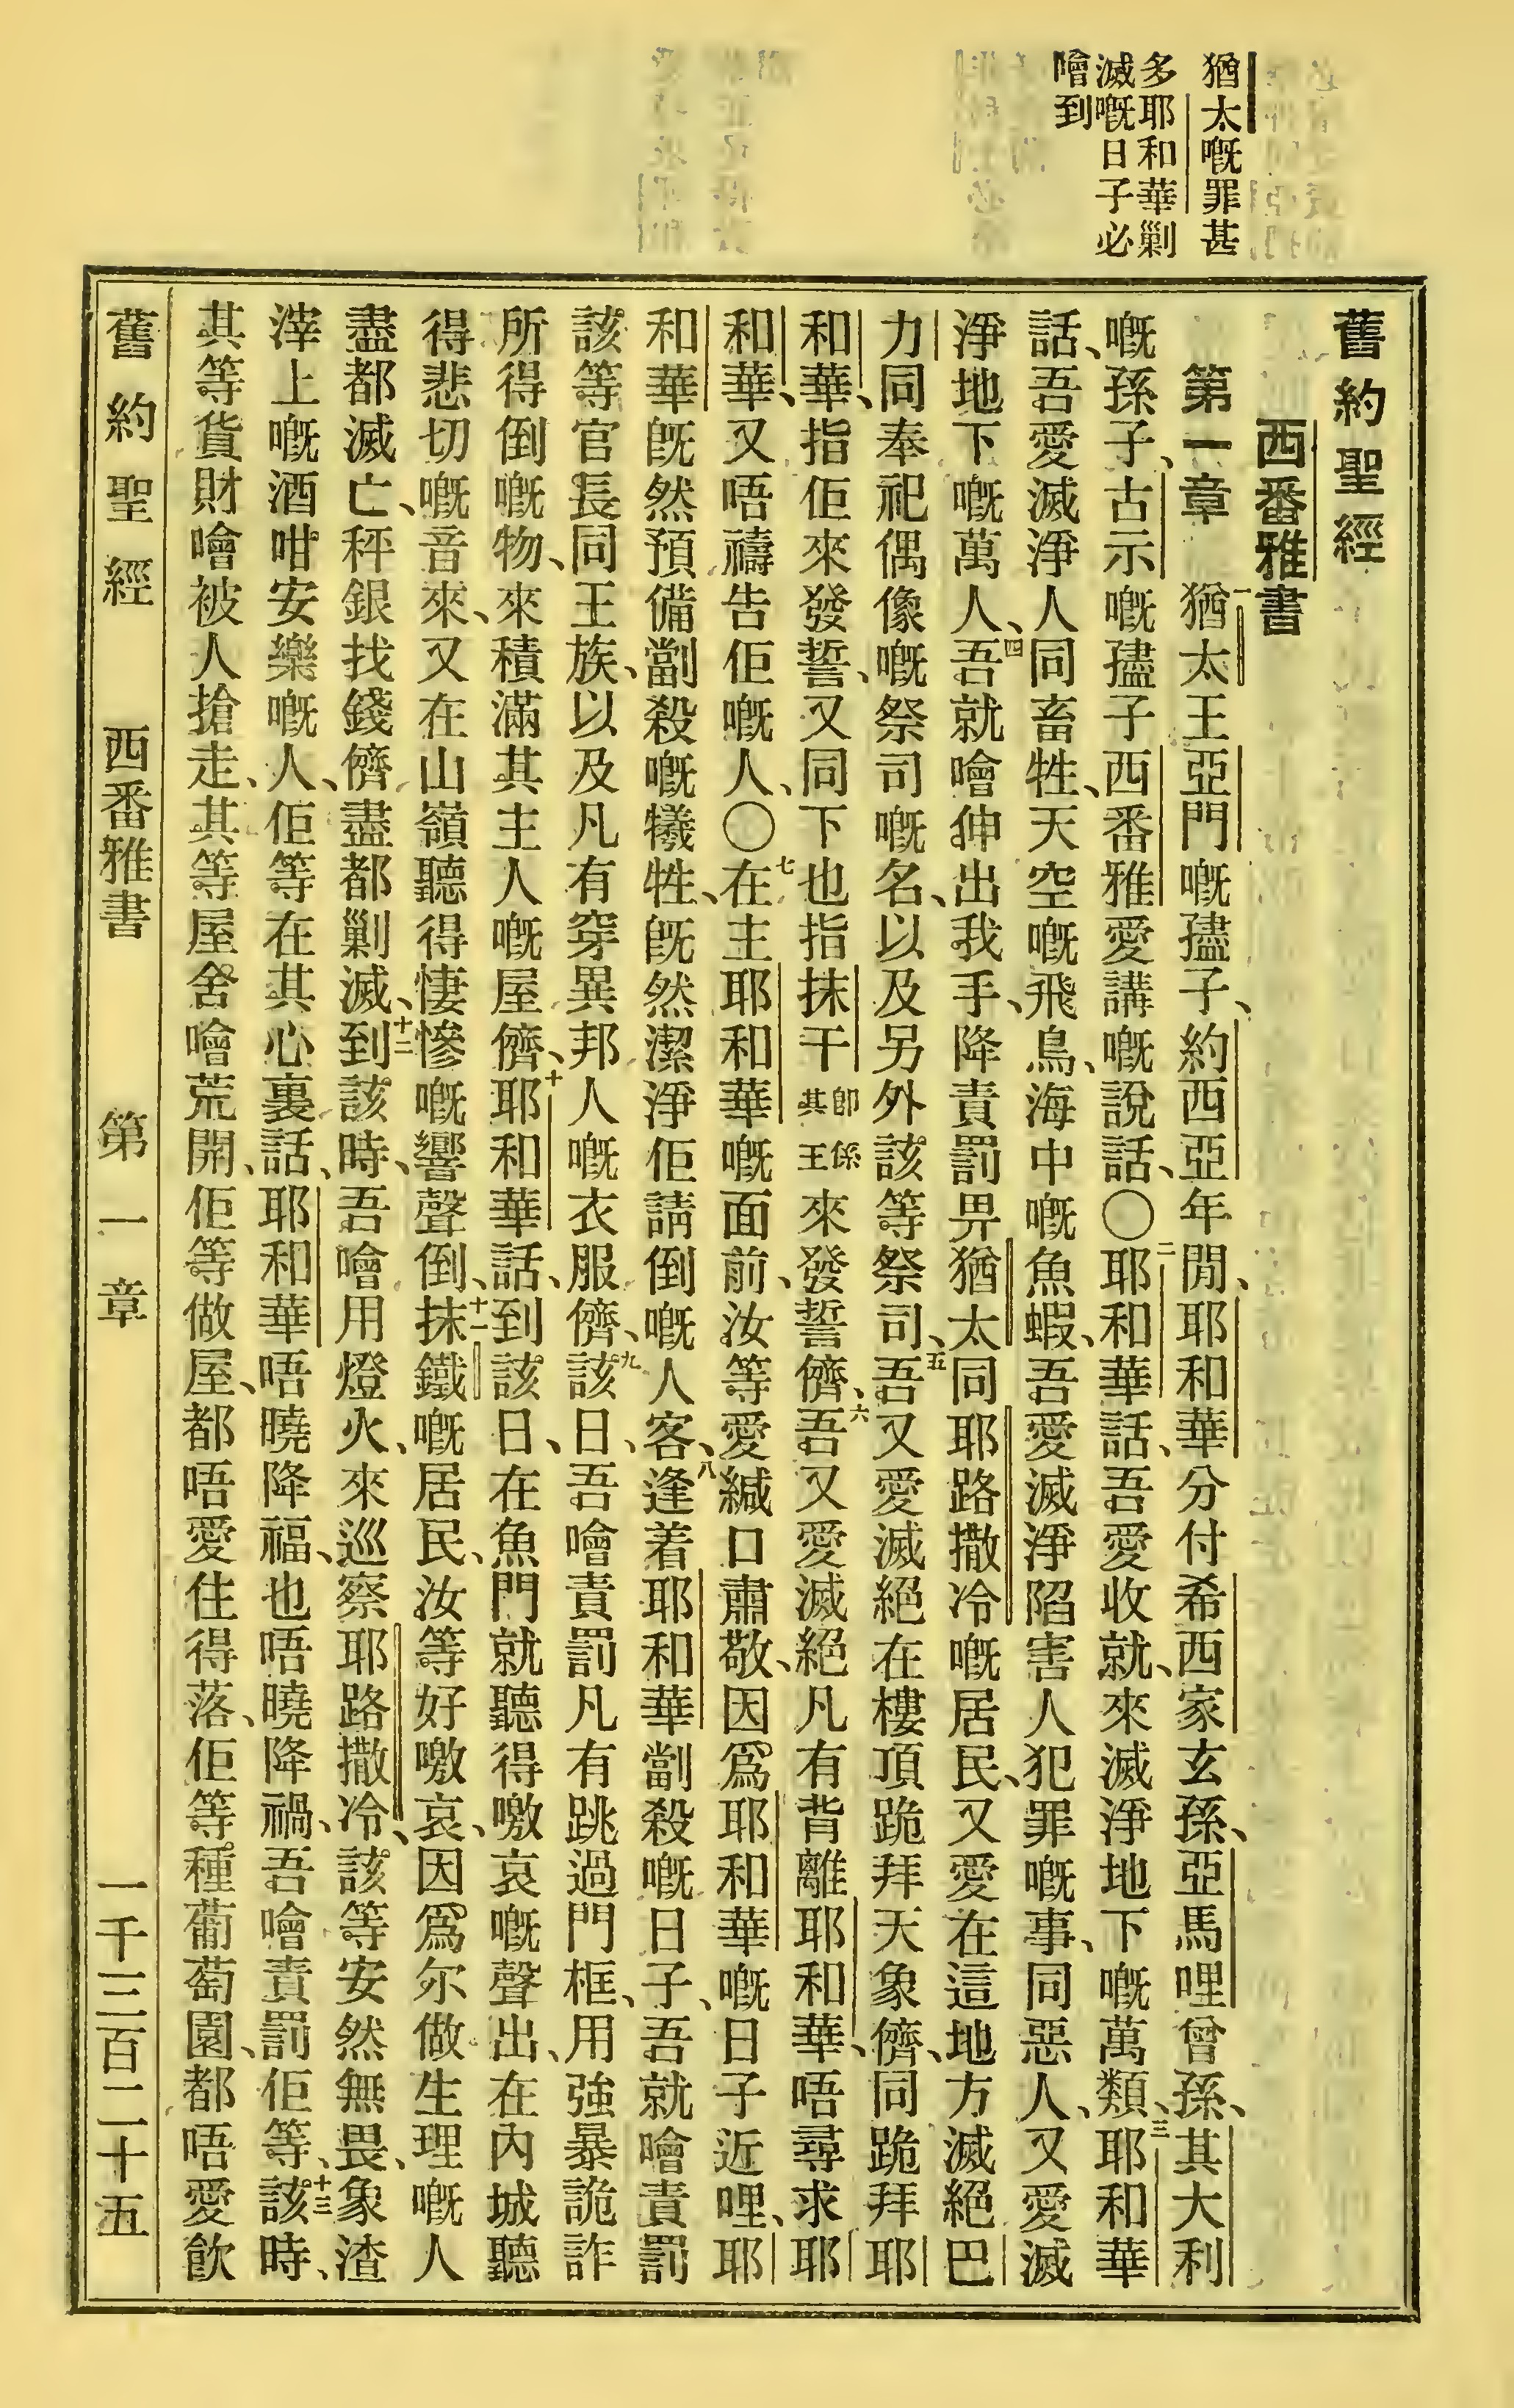 猶太嘅罪甚
多耶和華剿
滅嘅日子必
噲到
舊約聖經
西番雅書
第一章 一猶太王亞門嘅孻子、約西亞年閒、耶和華分付希西家玄孫、亞馬哩曾孫、其大利
嘅孫子、古示嘅孻子西番雅愛講嘅說話、〇二耶和華話、吾愛收就、來滅淨地下嘅萬類、三耶和華
話、吾愛滅淨人同畜牲、天空嘅飛鳥、海中嘅魚蝦、吾愛滅淨陷害人犯罪嘅事、同惡人、又愛滅
淨地下嘅萬人、四吾就噲伸出我手、降責罰畀猶太同耶路撒冷嘅居民、又愛在這地方滅絕巴
力同奉祀偶像嘅祭司嘅名、以及另外該等祭司、五吾又愛滅絕在樓頂跪拜天象儕、同跪拜耶
和華、指佢來發誓、又同下也指抹干卽係其王來發誓儕、六吾又愛滅絕凡有背離耶和華、唔尋求耶
和華、又唔禱告佢嘅人、〇七在主耶和華嘅面前、汝等愛緘口肅敬、因爲耶和華嘅日子近哩、耶
和華旣然預備劏殺嘅犧牲、旣然潔淨佢請倒嘅人客、八逢着耶和華劏殺嘅日子、吾就噲責罰
該等官長同王族、以及凡有穿異邦人嘅衣服儕、九該日、吾噲責罰凡有跳過門框、用強暴詭詐
所得倒嘅物、來積滿其主人嘅屋儕、十耶和華話、到該日、在魚門就聽得噭哀嘅聲出、在內城聽
得悲切嘅音來、又在山嶺聽得悽慘嘅響聲倒、十一抹鐵嘅居民、汝等好噭哀、因爲尔做生理嘅人
盡都滅亡、秤銀找錢儕盡都剿滅、十二到該時、吾噲用燈火、來巡察耶路撒冷、該等安然無畏、象渣
滓上嘅酒咁安樂嘅人、佢等在其心裏話、耶和華唔曉降福、也唔曉降禍、吾噲責罰佢等、十三該時、
其等貨財噲被人搶走、其等屋舍噲荒開、佢等做屋、都唔愛住得落、佢等種葡萄園、都唔愛飲
舊約聖經 西番雅書 第一章 一千三百二十五